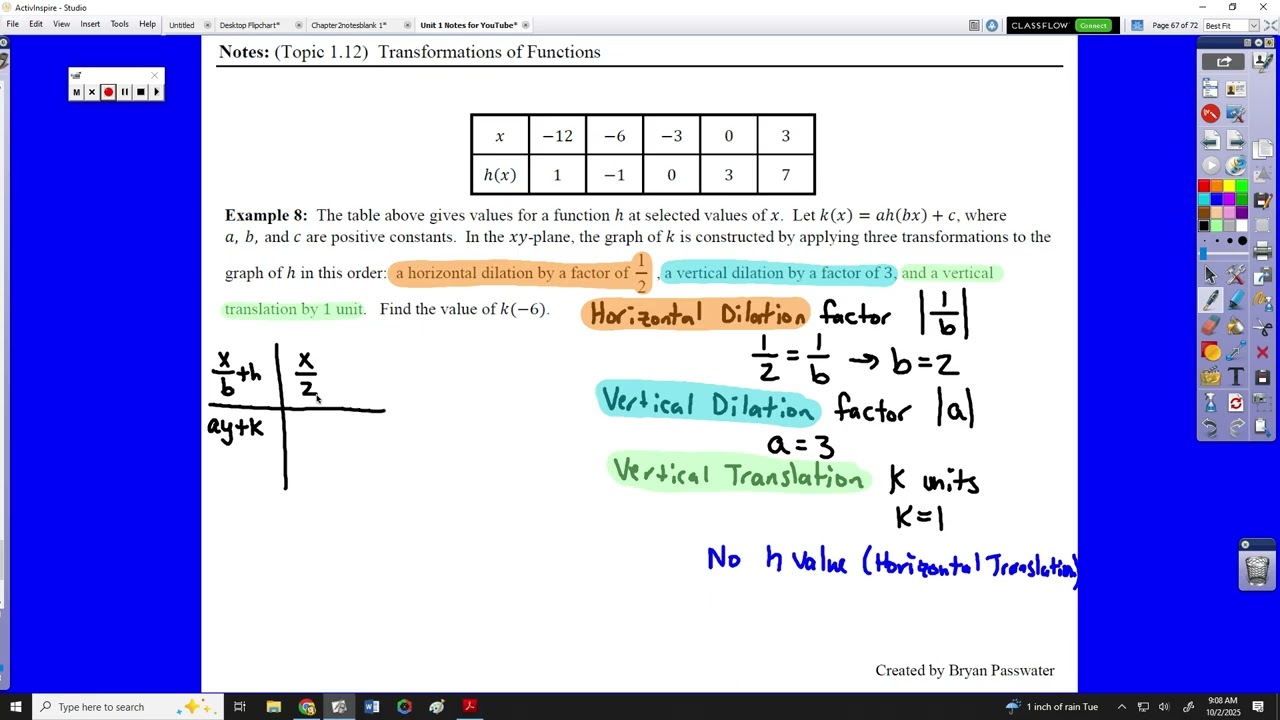 ActivInspire - Studio
File Edit View Insert Tools Help
Untitled Desktop Flipchart* Chapter2notesblank 1* Unit 1 Notes for YouTube*
CLASSFLOW Connect
Page 67 of 72 Best Fit
Notes: (Topic 1.12) Transformations of Functions
M
x −12 −6 −3 0 3
h(x) 1 −1 0 3 7
Example 8: The table above gives values for a function h at selected values of x. Let k(x) = ah(bx) + c, where
a, b, and c are positive constants. In the xy-plane, the graph of k is constructed by applying three transformations to the
graph of h in this order: a horizontal dilation by a factor of 1/2, a vertical dilation by a factor of 3, and a vertical
translation by 1 unit. Find the value of k(−6).
Horizontal Dilation factor |1/b|
1/2 = 1/b → b = 2
x/b + h x/2
Vertical Dilation factor |a|
ay + k
a = 3
Vertical Translation K units
K = 1
No h value (Horizontal Translation)
Created by Bryan Passwater
Type here to search
1 inch of rain Tue
9:08 AM
10/2/2025